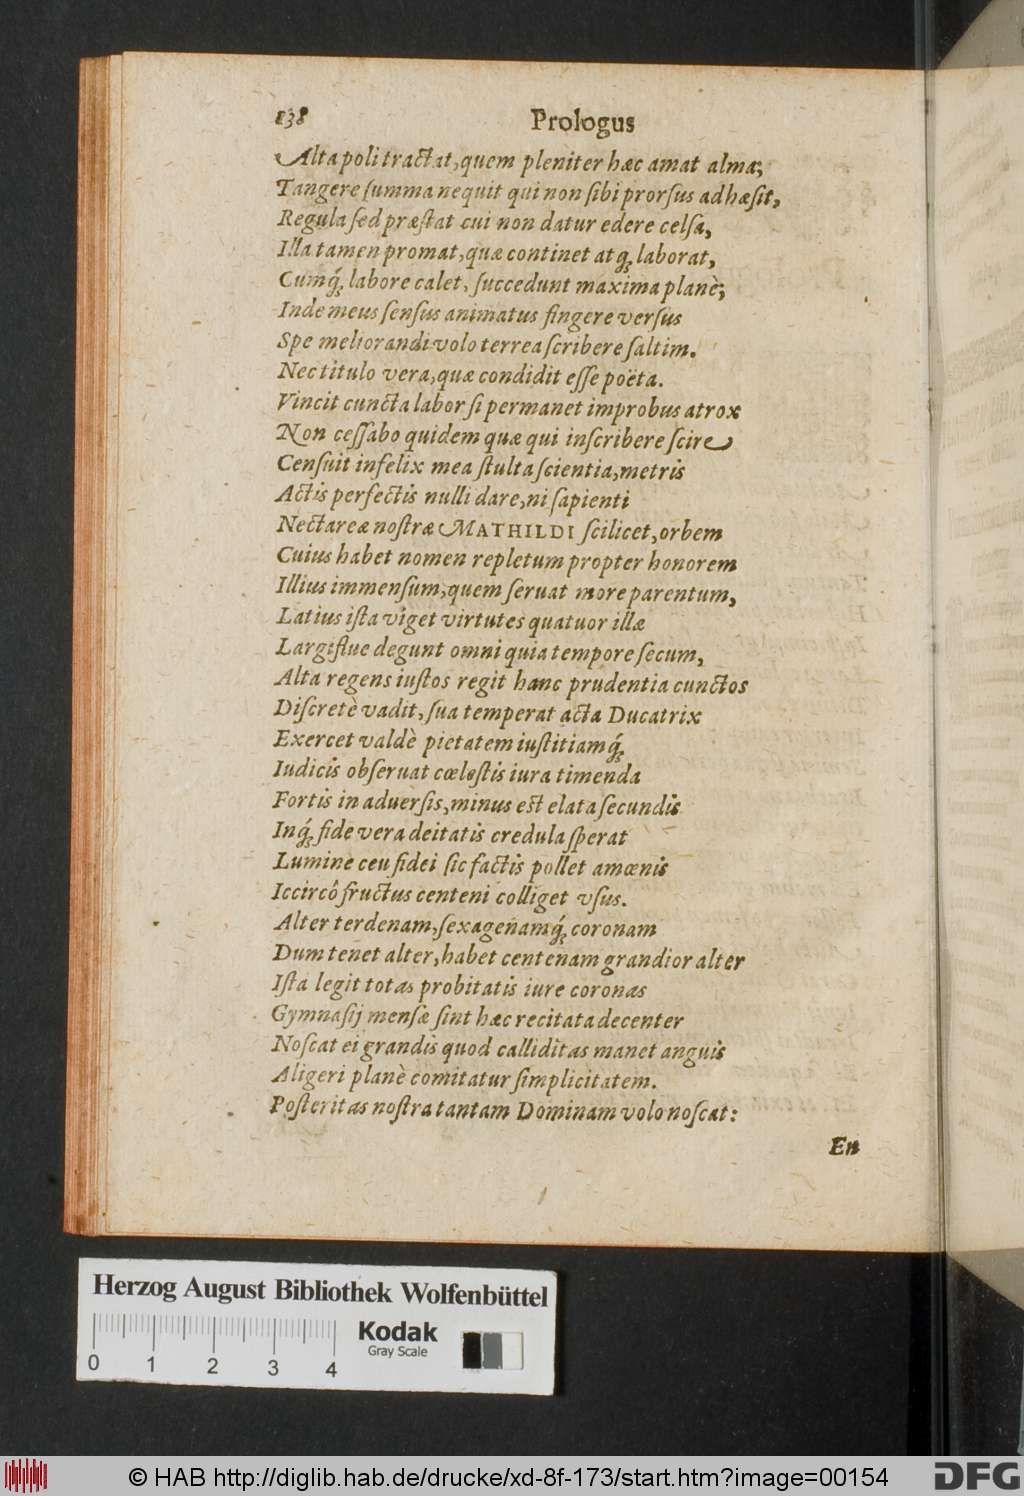 138 Prologus
Alta poli tractat, quem pleniter hæc amat alma;
Tangere ſumma nequit qui non ſibi prorſus adhæſit,
Regula ſed præſtat cui non datur edere celſa,
Illa tamen promat, quæ continet atq́; laborat,
Cumq́; labore calet, ſuccedunt maxima planè;
Inde meus ſenſus animatus fingere verſus
Spe meliorandi volo terrea ſcribere ſaltim.
Nec titulo vera, quæ condidit eſſe poëta.
Vincit cuncta labor ſi permanet improbus atrox
Non ceſſabo quidem quæ qui inſcribere ſcire
Cenſuit infelix mea ſtulta ſcientia, metris
Actis perfectis nulli dare, ni ſapienti
Nectareæ noſtræ MATHILDI ſcilicet, orbem
Cuius habet nomen repletum propter honorem
Illius immenſum, quem ſeruat more parentum,
Latius iſta viget virtutes quatuor illæ
Largiflue degunt omni quia tempore ſecum,
Alta regens iuſtos regit hanc prudentia cunctos
Diſcretè vadit, ſua temperat acta Ducatrix
Exercet valdè pietatem iuſtitiamq́;
Iudicis obſeruat cœleſtis iura timenda
Fortis in aduerſis, minus eſt elata ſecundis
Inq́; fide vera deitatis credula ſperat
Lumine ceu fidei ſic factis pollet amœnis
Iccircô fructus centeni colliget vſus.
Alter terdenam, ſexagenamq́; coronam
Dum tenet alter, habet centenam grandior alter
Iſta legit totas probitatis iure coronas
Gymnaſij menſæ ſint hæc recitata decenter
Noſcat ei grandis quod calliditas manet anguis
Aligeri planè comitatur ſimplicitatem.
Poſteritas noſtra tantam Dominam volo noſcat:
En
Herzog August Bibliothek Wolfenbüttel
0 1 2 3 4
Kodak
Gray Scale
© HAB http://diglib.hab.de/drucke/xd-8f-173/start.htm?image=00154
DFG